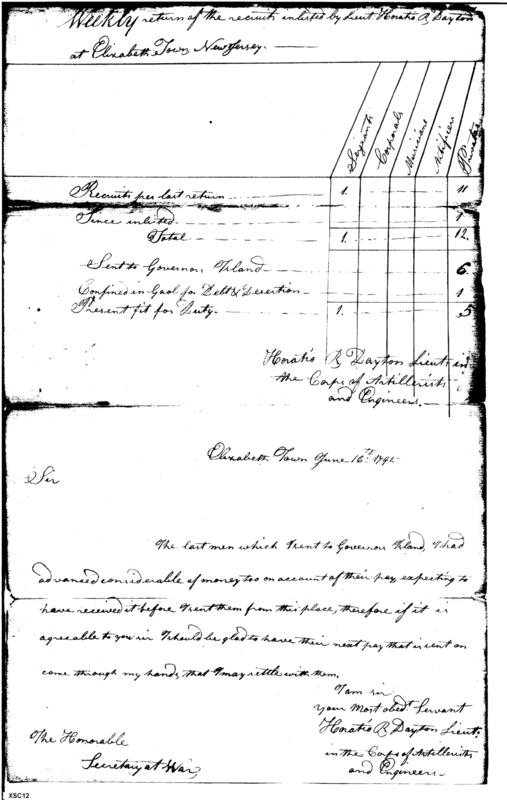 Weekly return of the recruits inlisted by Lieut Horatio R Dayton
at Elizabeth Town New Jersey.
Sergeants Corporals Musicians Artificers Privates
Recruits per last return 1. 11
Since inlisted 1
Total 1. 12.
Sent to Governors Island 6.
Confined in Gaol for Debt & Desertion 1
Present fit for Duty. 1. 5
Horatio R Dayton Lieut: in
the Corps of Artillerists
and Engineers.
Elizabeth Town June 16th
Sir
The last men which I sent to Governors Island, I had
advanced considerable of money too on account of their pay, expecting to
have received it before I sent them from this place, therefore if it is
agreeable to you sir I should be glad to have their next pay that is sent on
come through my hands, that I may settle with them.
I am sir
your Most obedt. Servant
Horatio R Dayton Lieut:
in the Corps of Artillerists
and Engineers
The Honorable
Secretary at War,
XSC12